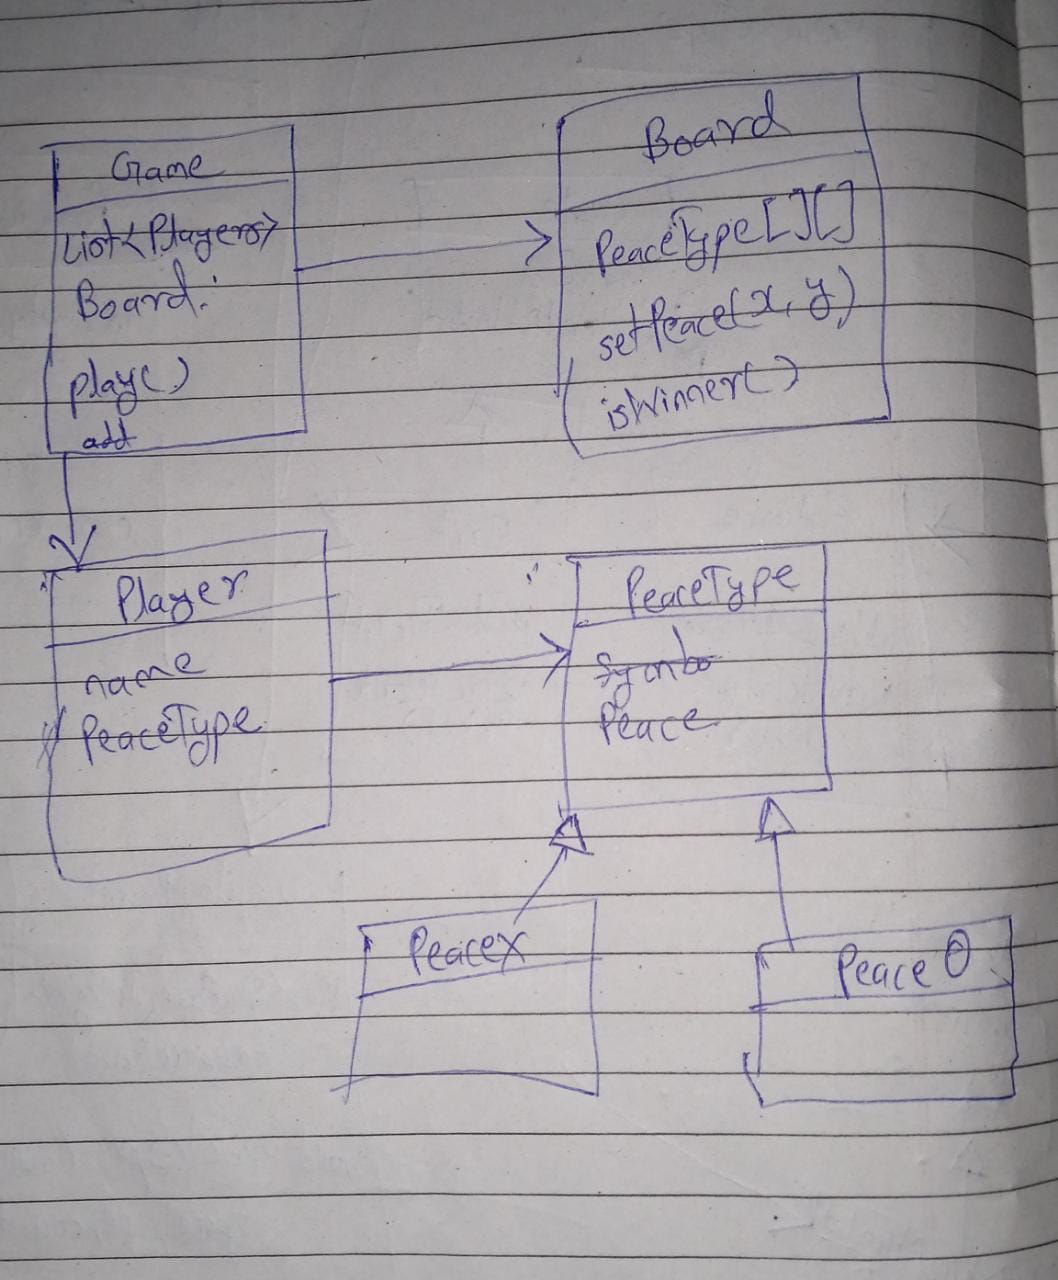 Game
List<Players>
Board.
play()
add
Board
PeaceType[][]
setPeace(x, y)
isWinner()
Player
name
PeaceType
PeaceType
Symbo
Peace
PeaceX
Peace O